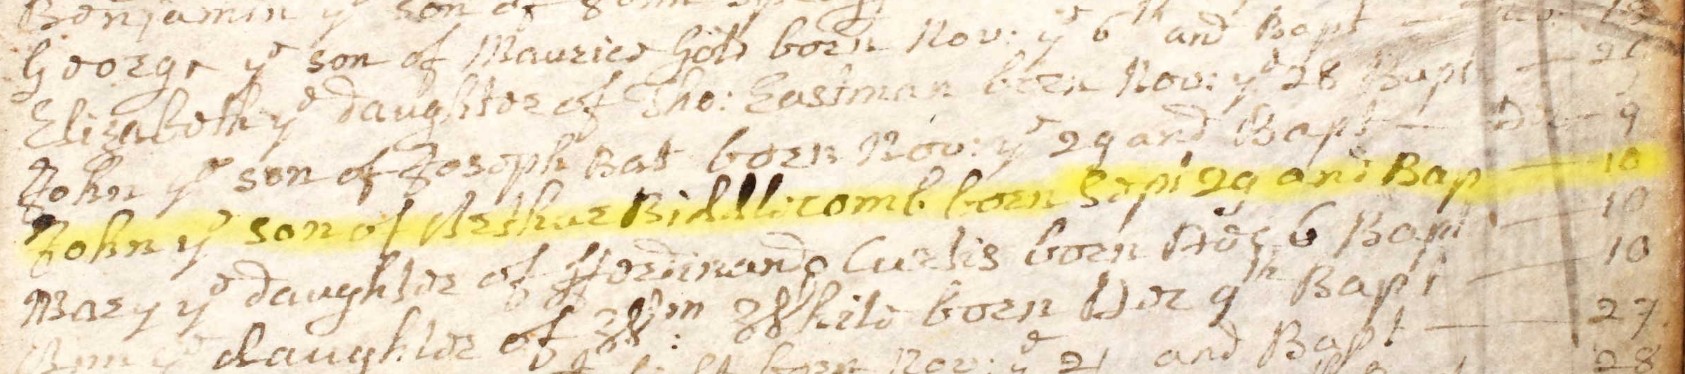 Benjamin yᵉ son of John
George yᵉ son of Maurice born Nov: yᵉ 6ᵗʰ and Bapt
Elizabeth yᵉ daughter of Tho: Eastman born Nov: yᵉ 28 Bapt — 26
John yᵉ son of Joseph Bat born Nov: yᵉ 29 and Bapt — De — 9
John yᵉ son of Arthur Biddlecomb born Sept 29 and Bap — 10
Mary yᵉ daughter of Ferdinando Curtis born Dec 6 Bapt — 10
Ann yᵉ daughter of Wᵐ: White born Dec 9ᵗʰ Bapt — 10
born Nov: yᵉ 21 and Bapt — 27
28